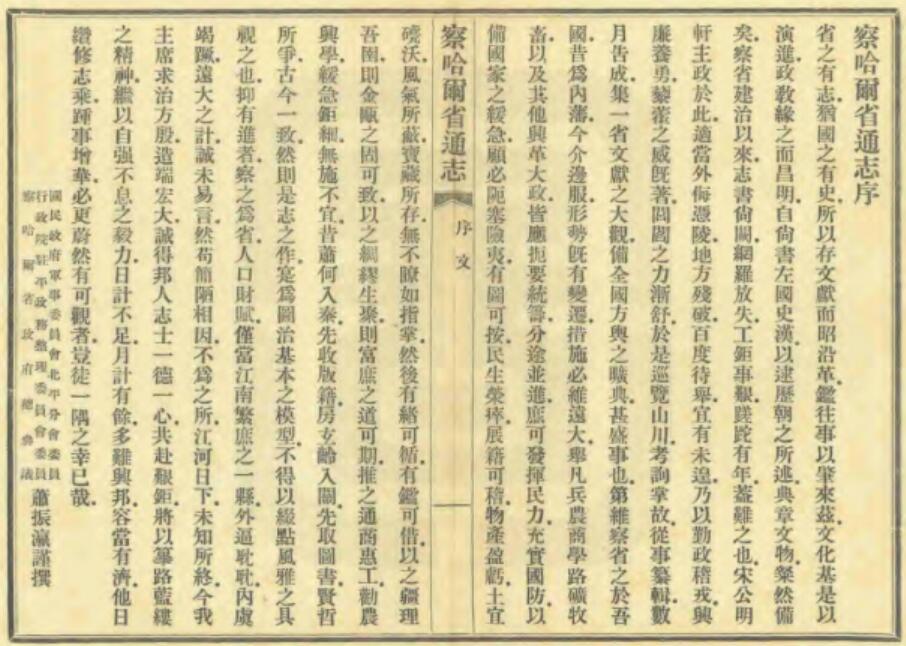 察哈爾省通志序
省之有志猶國之有史所以存文獻而昭沿革鑑往事以肇來茲文化基是以
演進政教緣之而昌明自尙書左國史漢以逮歷朝之所述典章文物粲然備
矣察省建治以來志書尙闕網羅放失工鉅事艱蹉跎有年蓋難之也宋公明
軒主政於此適當外侮憑陵地方殘破百度待舉宜有未遑乃以勤政稽戎興
廉養勇藜藿之威旣著閭閻之力漸舒於是巡覽山川考詢掌故從事纂輯數
月告成集一省文獻之大觀備全國方輿之曠典甚盛事也第維察省之於吾
國昔爲內藩今介邊服形勢旣有變遷措施必維遠大舉凡兵農商學路礦牧
畜以及其他興革大政皆應扼要統籌分途並進庶可發揮民力充實國防以
備國家之緩急顧必阨塞險夷有圖可按民生榮瘁展籍可稽物產盈虧土宜
磽沃風氣所蔽寶藏所存無不瞭如指掌然後有緒可循有鑑可借以之疆理
吾圉則金甌之固可致以之綢繆生聚則富庶之道可期推之通商惠工勸農
興學緩急鉅細無施不宜昔蕭何入秦先收版籍房玄齡入關先取圖書賢哲
所爭古今一致然則是志之作寔爲圖治基本之模型不得以綴點風雅之具
視之也抑有進者察之爲省人口財賦僅當江南繁庶之一縣外逼耽耽內虞
竭蹶遠大之計誠未易言然苟簡陋相因不爲之所江河日下未知所終今我
主席求治方殷造端宏大誠得邦人志士一德一心共赴艱鉅將以篳路藍縷
之精神繼以自强不息之毅力日計不足月計有餘多難興邦容當有濟他日
纘修志乘踵事增華必更蔚然有可觀者豈徒一隅之幸已哉
國民政府軍事委員會北平分會委員
行政院駐平政務整理委員會委員
察哈爾省政府總參議
蕭振瀛謹撰
察哈爾省通志
序文
一